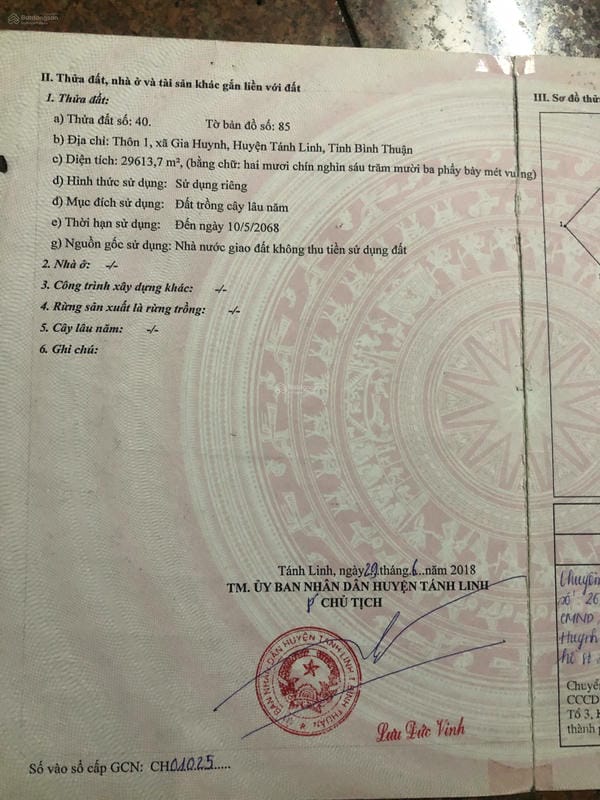 Batdongsan
II. Thửa đất, nhà ở và tài sản khác gắn liền với đất
1. Thửa đất:
a) Thửa đất số: 40. Tờ bản đồ số: 85
b) Địa chỉ: Thôn 1, xã Gia Huynh, Huyện Tánh Linh, Tỉnh Bình Thuận
c) Diện tích: 29613,7 m², (bằng chữ: hai mươi chín nghìn sáu trăm mười ba phẩy bảy mét vuông)
d) Hình thức sử dụng: Sử dụng riêng
đ) Mục đích sử dụng: Đất trồng cây lâu năm
e) Thời hạn sử dụng: Đến ngày 10/5/2068
g) Nguồn gốc sử dụng: Nhà nước giao đất không thu tiền sử dụng đất
2. Nhà ở: -/-
3. Công trình xây dựng khác: -/-
4. Rừng sản xuất là rừng trồng: -/-
5. Cây lâu năm: -/-
6. Ghi chú:
Tánh Linh, ngày 29 tháng 6 năm 2018
TM. ỦY BAN NHÂN DÂN HUYỆN TÁNH LINH
CHỦ TỊCH
ỦY BAN NHÂN DÂN HUYỆN TÁNH LINH T. BÌNH THUẬN
Lưu Đức Vinh
Số vào sổ cấp GCN: CH01025.....
III. Sơ đồ thử
1
Chuyển
số: 26
CMND
Huynh
Chuyể
CCCD
Tổ 3, H
thành p